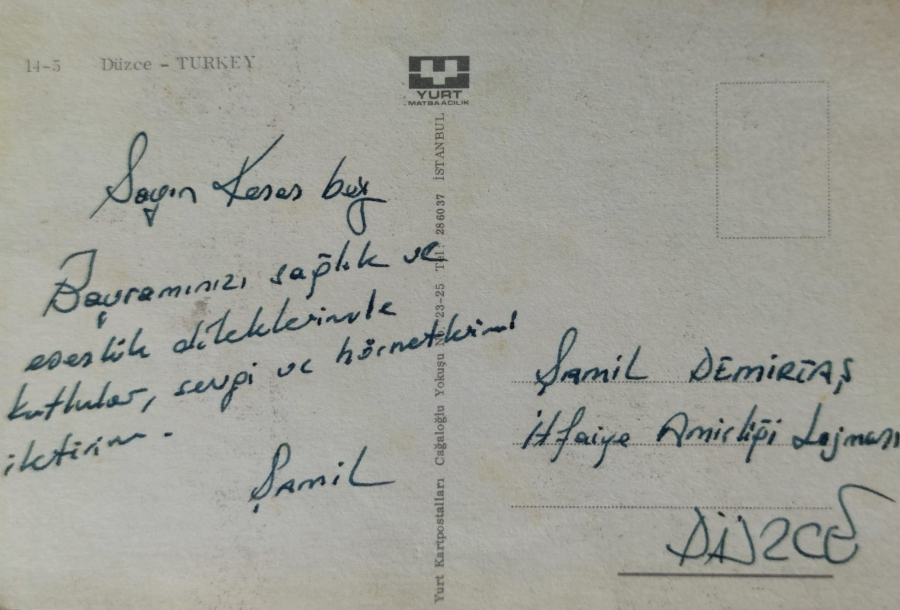 14-5 Düzce - TURKEY
YURT
MATBAACILIK
Sayın Kesas bey
Bayramınızı sağlık ve
esenlik dileklerimle
kutlular, sevgi ve hörmetlerimi
iletirim.
Şamil
Yurt Kartpostalları Cağaloğlu Yokuşu No. 23-25 Tel: 286037 İSTANBUL
ŞAMİL DEMİRTAŞ
İtfaiye Amirliği Lojmanı
DÜZCE